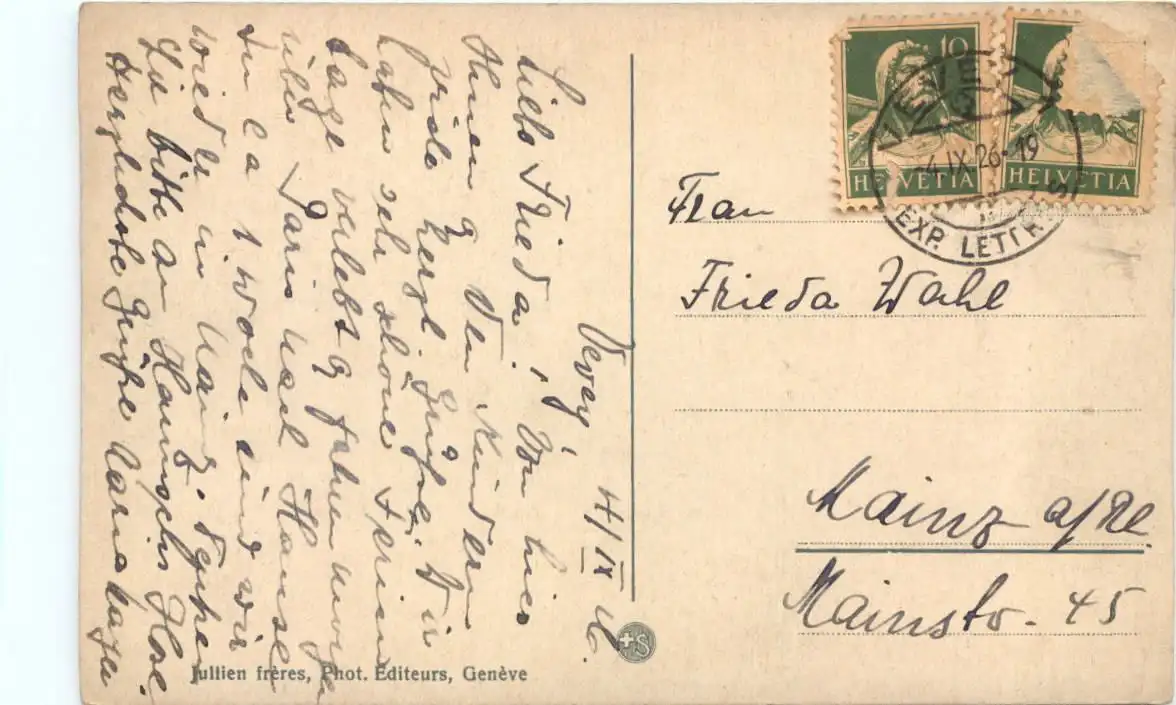 Vevey 4/IX 26.
Liebe Frieda, Von hier
Ihnen & den Kindern
viele herzl. Grüße. Wir
haben sehr schöne Ferien
Tage verlebt & fahren morgen
über Paris nach Hause
In ca 1 Woche sind wir
wieder in Mainz.
Sie bitte an
Herzlichste Grüße
Frau
Frieda Wahl
Mainz a/Rh.
Mainstr. 45
10
HELVETIA
HELVETIA
VEVEY
-4.IX.26-19
EXP. LETTRES
+S
Jullien frères, Phot. Editeurs, Genève